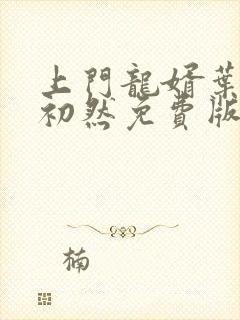 上門龍婿葉
初然免費版
楠